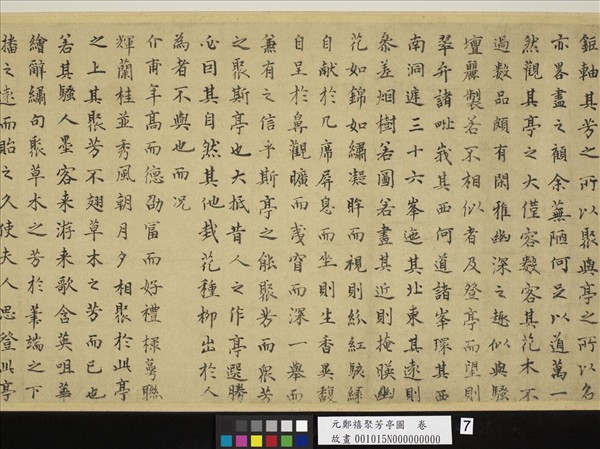 鉅軸其芳之所以聚與亭之所以名
亦畧盡之顧余蕪陋何足以道萬一
然觀其亭之大僅容數客其花木不
過數品頗有閑雅幽深之趣似與騷
壇麗製若不相似者及登亭而望則
翠弁諸
峩其西何道諸峯環其西
南洞遞三十六峯迤其北東其遠則
叅差烟樹若圖若畫其近則掩暎幽
花如錦如繡凝眸而視則紛紅駭綠
自献於几席屏息而坐則生香異馥
自呈於鼻觀曠而
窅而深一舉而
兼有之信乎斯亭之能聚芳而衆芳
之聚斯亭也大抵昔人之作亭選勝
必因其自然其他栽花種柳出於人
為者不與也而况
介甫年高而德劭富而好禮棣萼聯
輝蘭桂並秀風朝月夕相聚於此亭
之上其聚芳不翅草木之芳而已也
若其騷人墨客来游来歌含英咀華
繪辭繡句聚草木之芳於筆端之下
播之遠而貽之久使夫人思登此亭
元鄭禧聚芳亭圖 卷
故畫 001015N000000000
7